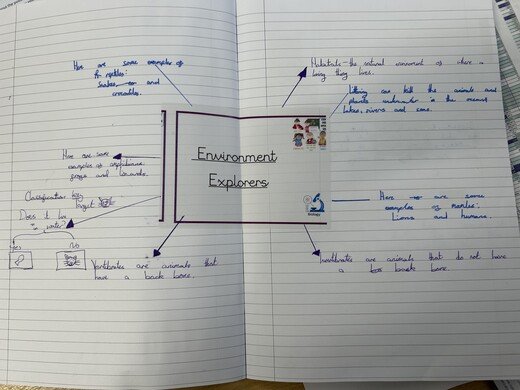 Here are some examples of
reptiles:
Snakes, and
crocodiles.
Habitats - the natural enviroment of where a
living thing lives.
Littering can kill the animals and
plants underwater in the oceans,
lakes, rivers and
Environment
Explorers
Biology
Here are some
examples of amphibians:
frogs and
Classification key
Does it live
in water?
Yes
No
Here are some
examples of
Lions and humans.
Vertebrates are animals that
have a back bone.
Invertebrates are animals that do not have
a back bone.